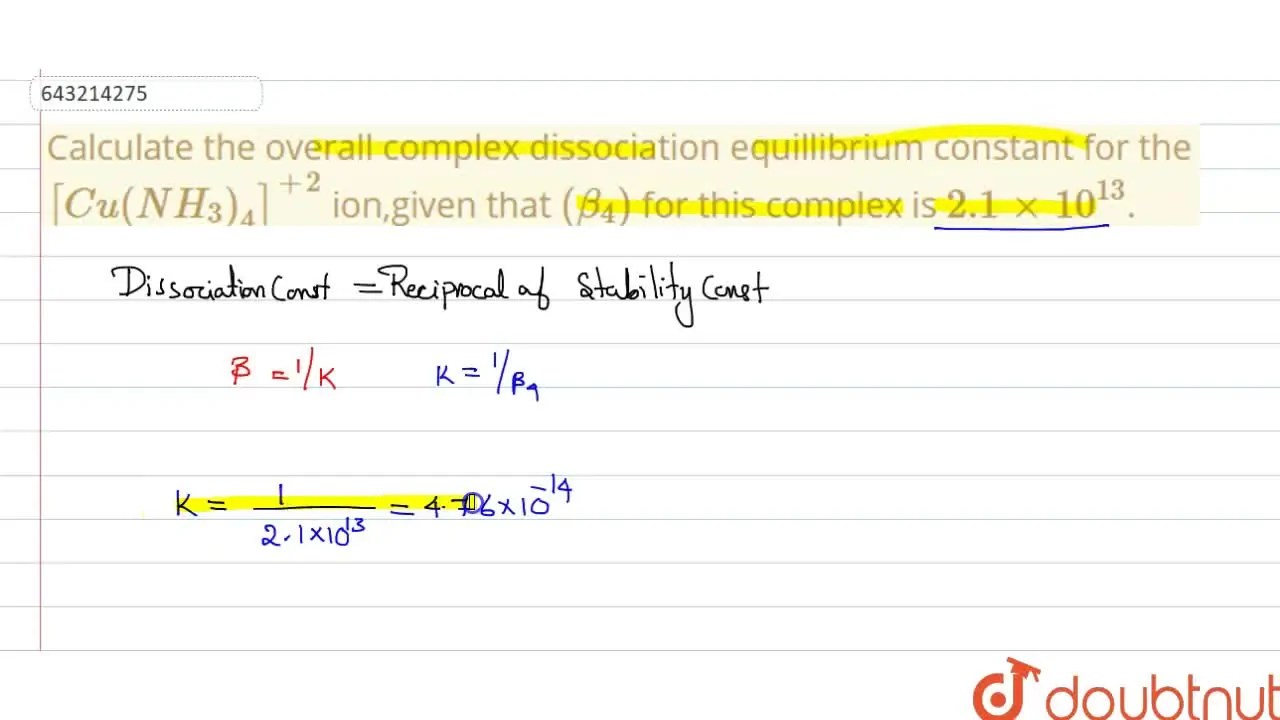 643214275
Calculate the overall complex dissociation equillibrium constant for the
[Cu(NH₃)₄]⁺² ion,given that (β₄) for this complex is 2.1 × 10¹³.
Dissociation Const = Reciprocal of Stability Const
β = 1/K K = 1/β₄
K = 1/2.1×10¹³ = 4.76×10⁻¹⁴
doubtnut